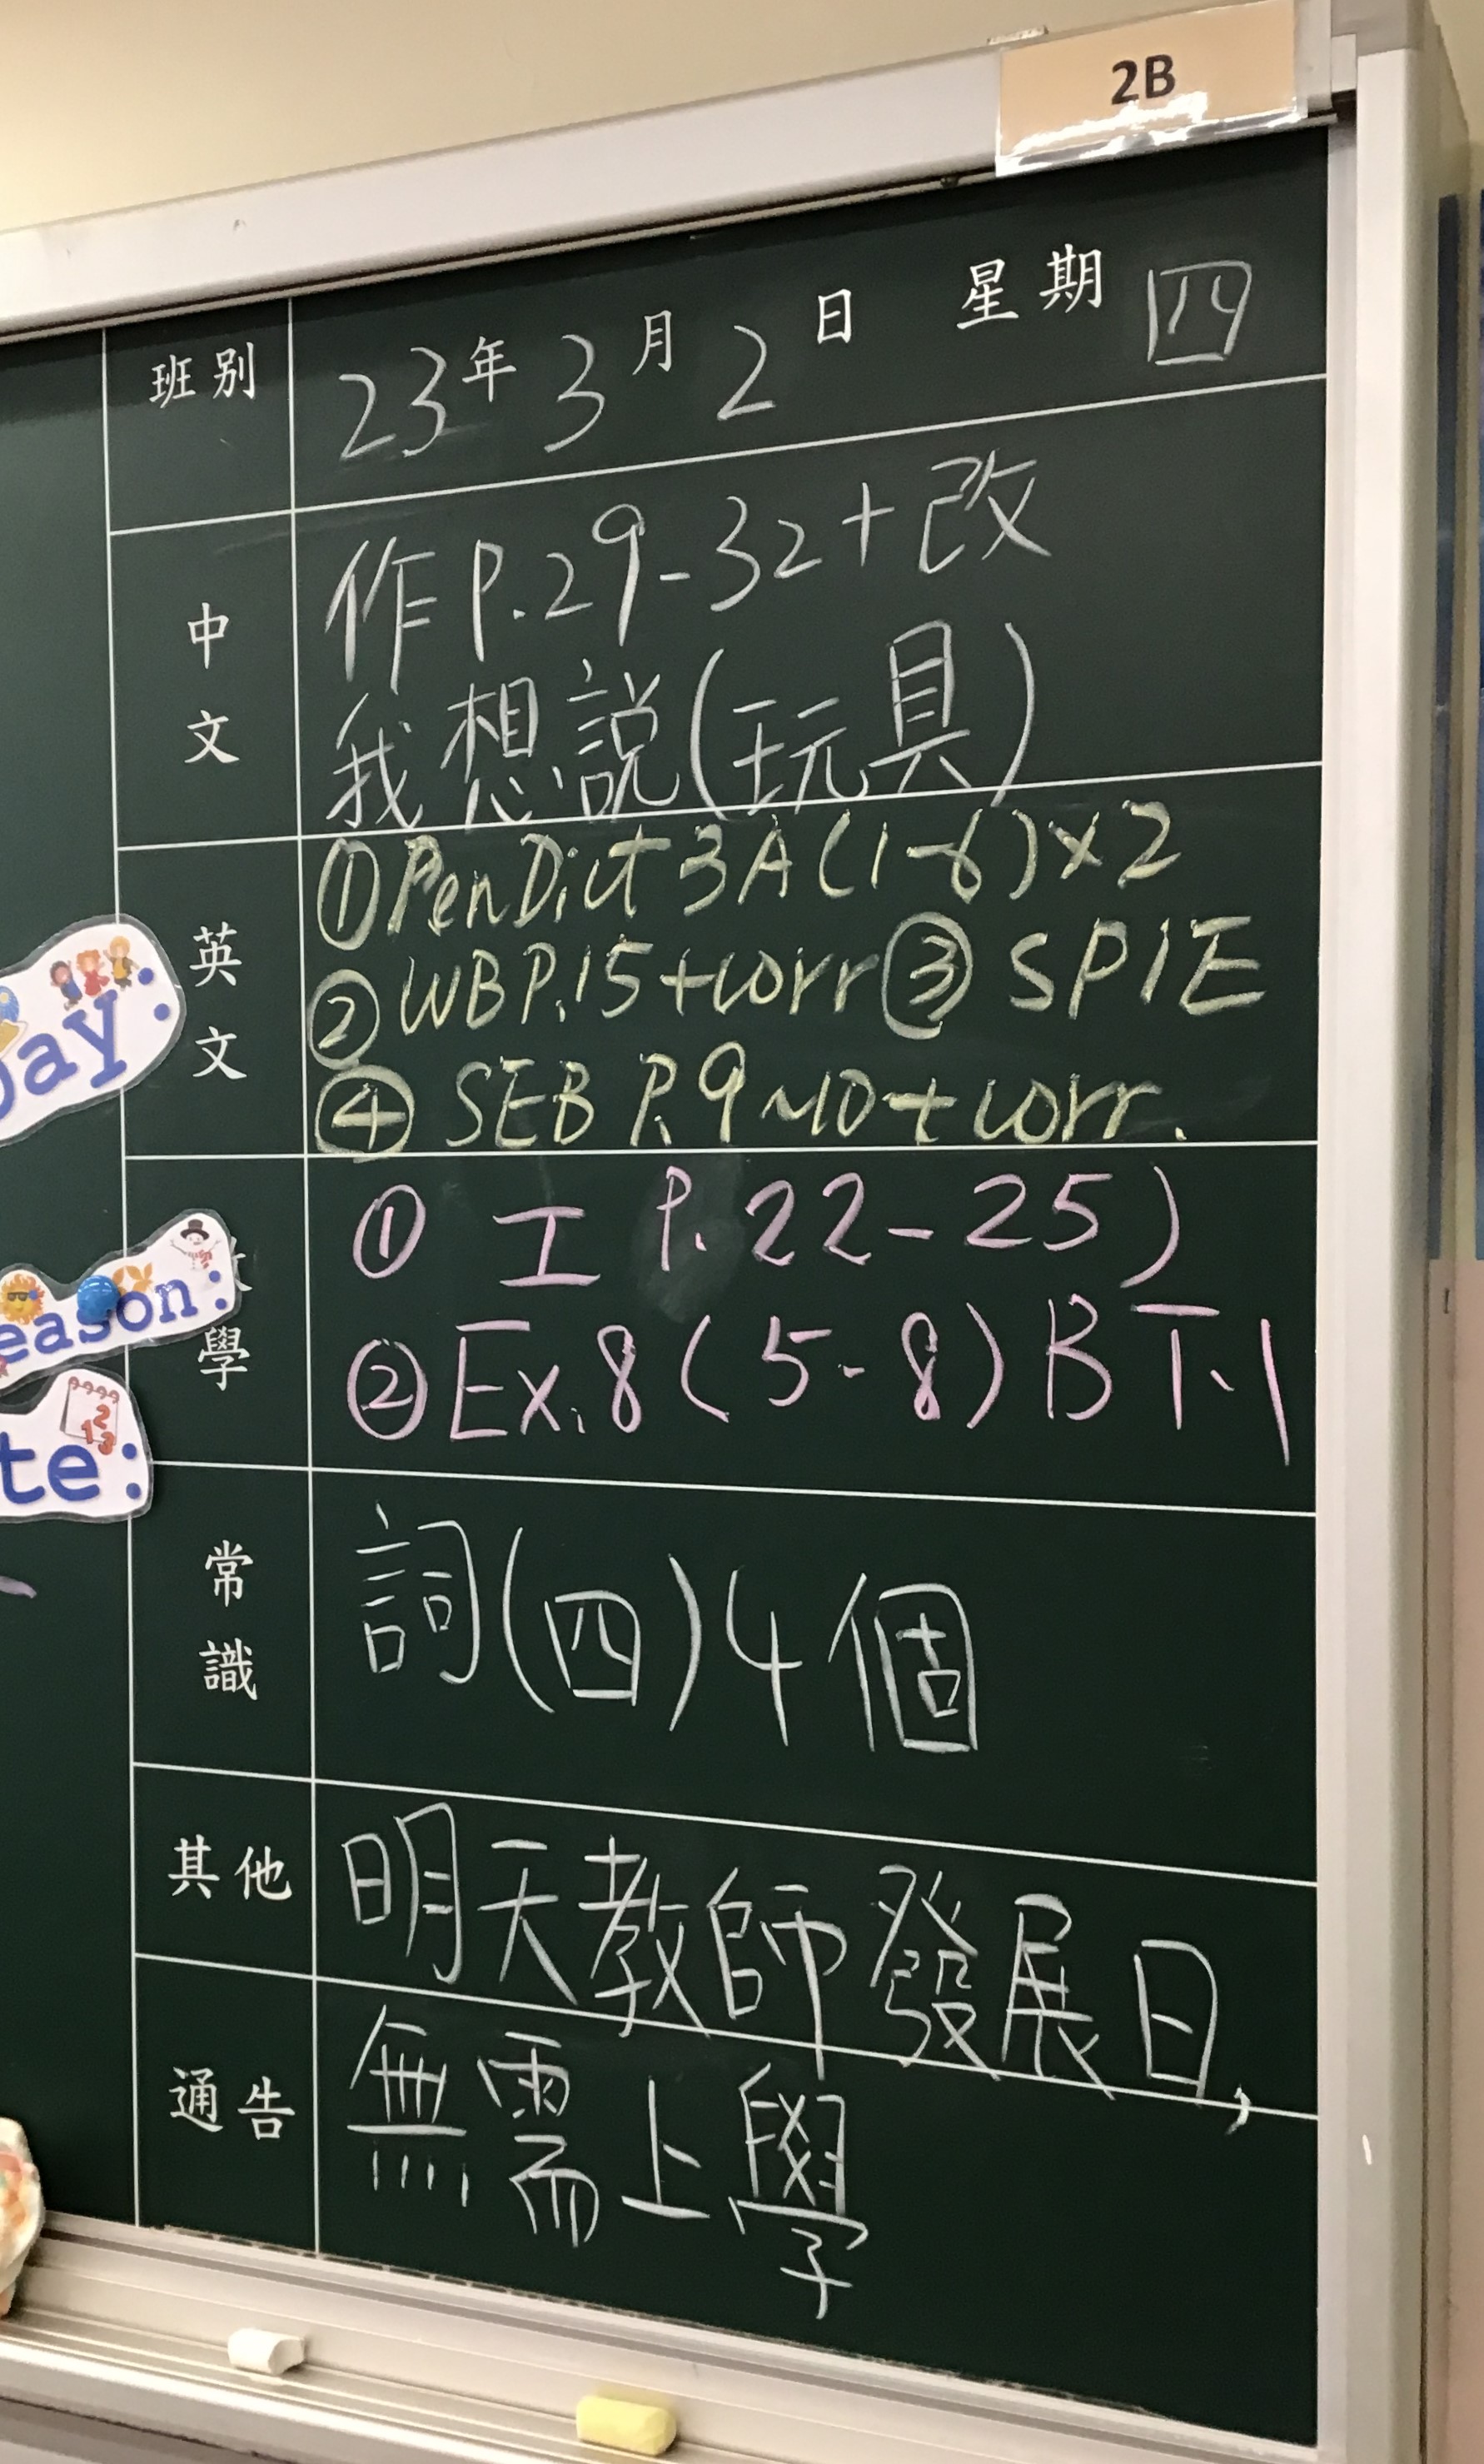 2B
班別 23年3月2日 星期四
中文 作P.29-32+改
我想説(玩具)
英文 ①PenDict 3A(1-6)×2
②WBP.15+corr ③ SPIE
④ SEB P.9~10+corr.
學 ① 工 P.22-25)
②Ex.8(5-8) BT.1
常識 詞(四)4個
其他 明天教師發展日,
通告 無需上學
ay:
eason:
te: